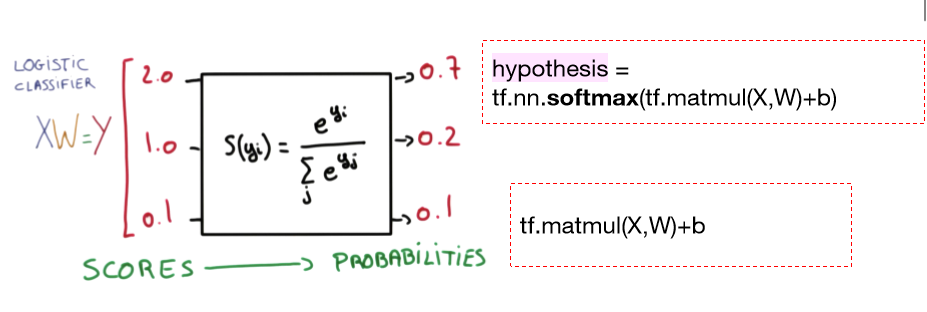 LOGISTIC
CLASSIFIER
XW=Y
2.0
1.0
0.1
S(yi) = e^yi / Σj e^yj
→0.7
→0.2
→0.1
SCORES → PROBABILITIES
hypothesis =
tf.nn.softmax(tf.matmul(X,W)+b)
tf.matmul(X,W)+b